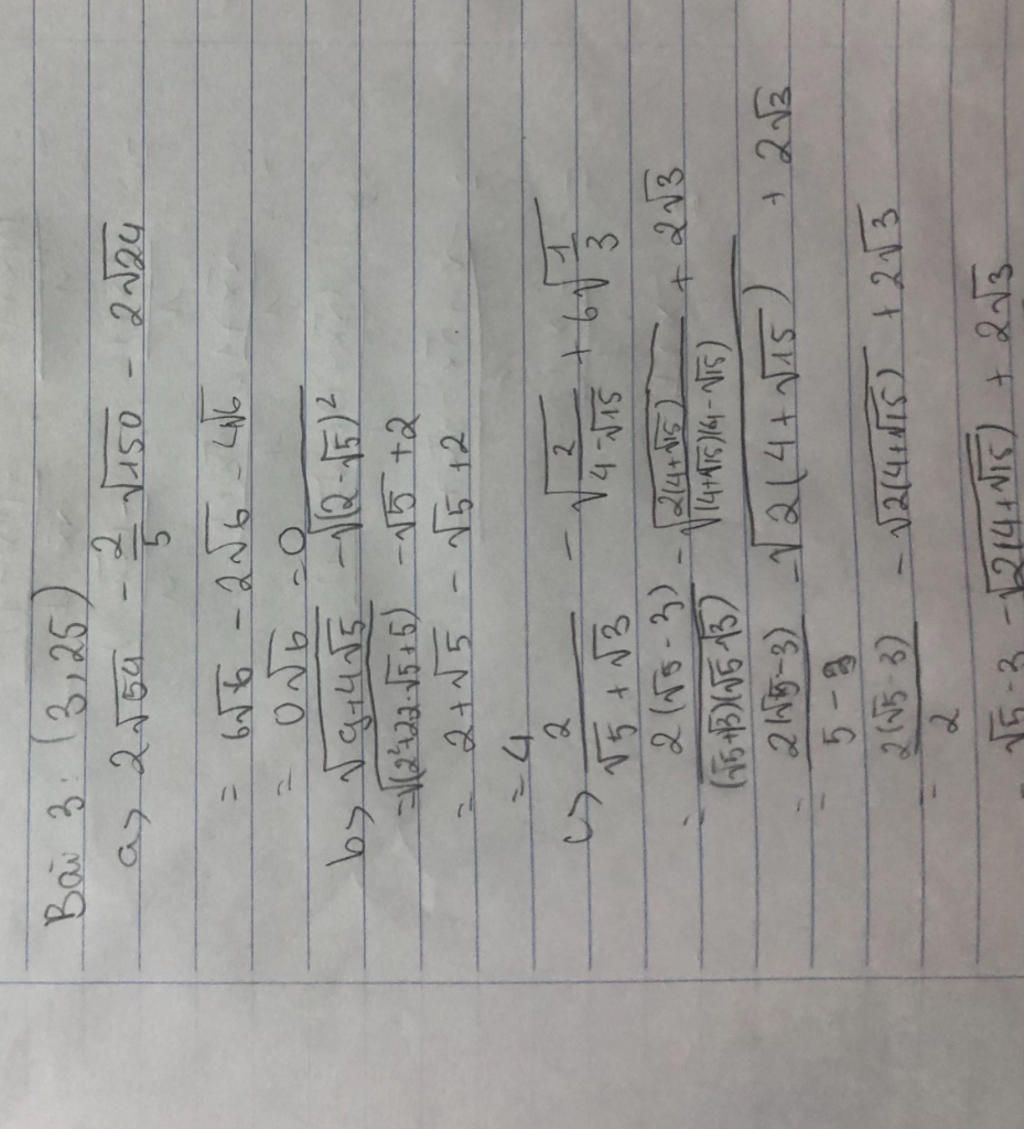 Bài 3: (3,25)
a> 2√54 - 2/5 √150 - 2√24
= 6√6 - 2√6 - 4√6
= 0√6 = 0
b> √(9+4√5) - √((2-√5)²)
= √(2²+2.2.√5+5) - √5 + 2
= 2+√5 - √5 + 2
= 4
c> 2/(√5+√3) - √(2/(4-√15)) + 6√(1/3)
= 2(√5-3)/((√5+√3)(√5-√3)) - √(2(4+√15)/((4+√15)(4-√15))) + 2√3
= 2(√5-3)/(5-3) - √(2(4+√15)) + 2√3
= 2(√5-3)/2 - √(2(4+√15)) + 2√3
= √5-3 - √(2(4+√15)) + 2√3